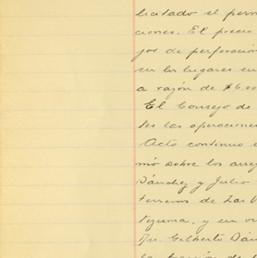 licitado el perm
ciones. El precio
jos de perforación
en los lugares en
a razón de $6.00
El Consejo de
tes las operacione
Acto continuo
mó sobre los arreg
Sánchez y Julio
terrenos de Las
teguma, y en vi
Dn. Gilberto Sán